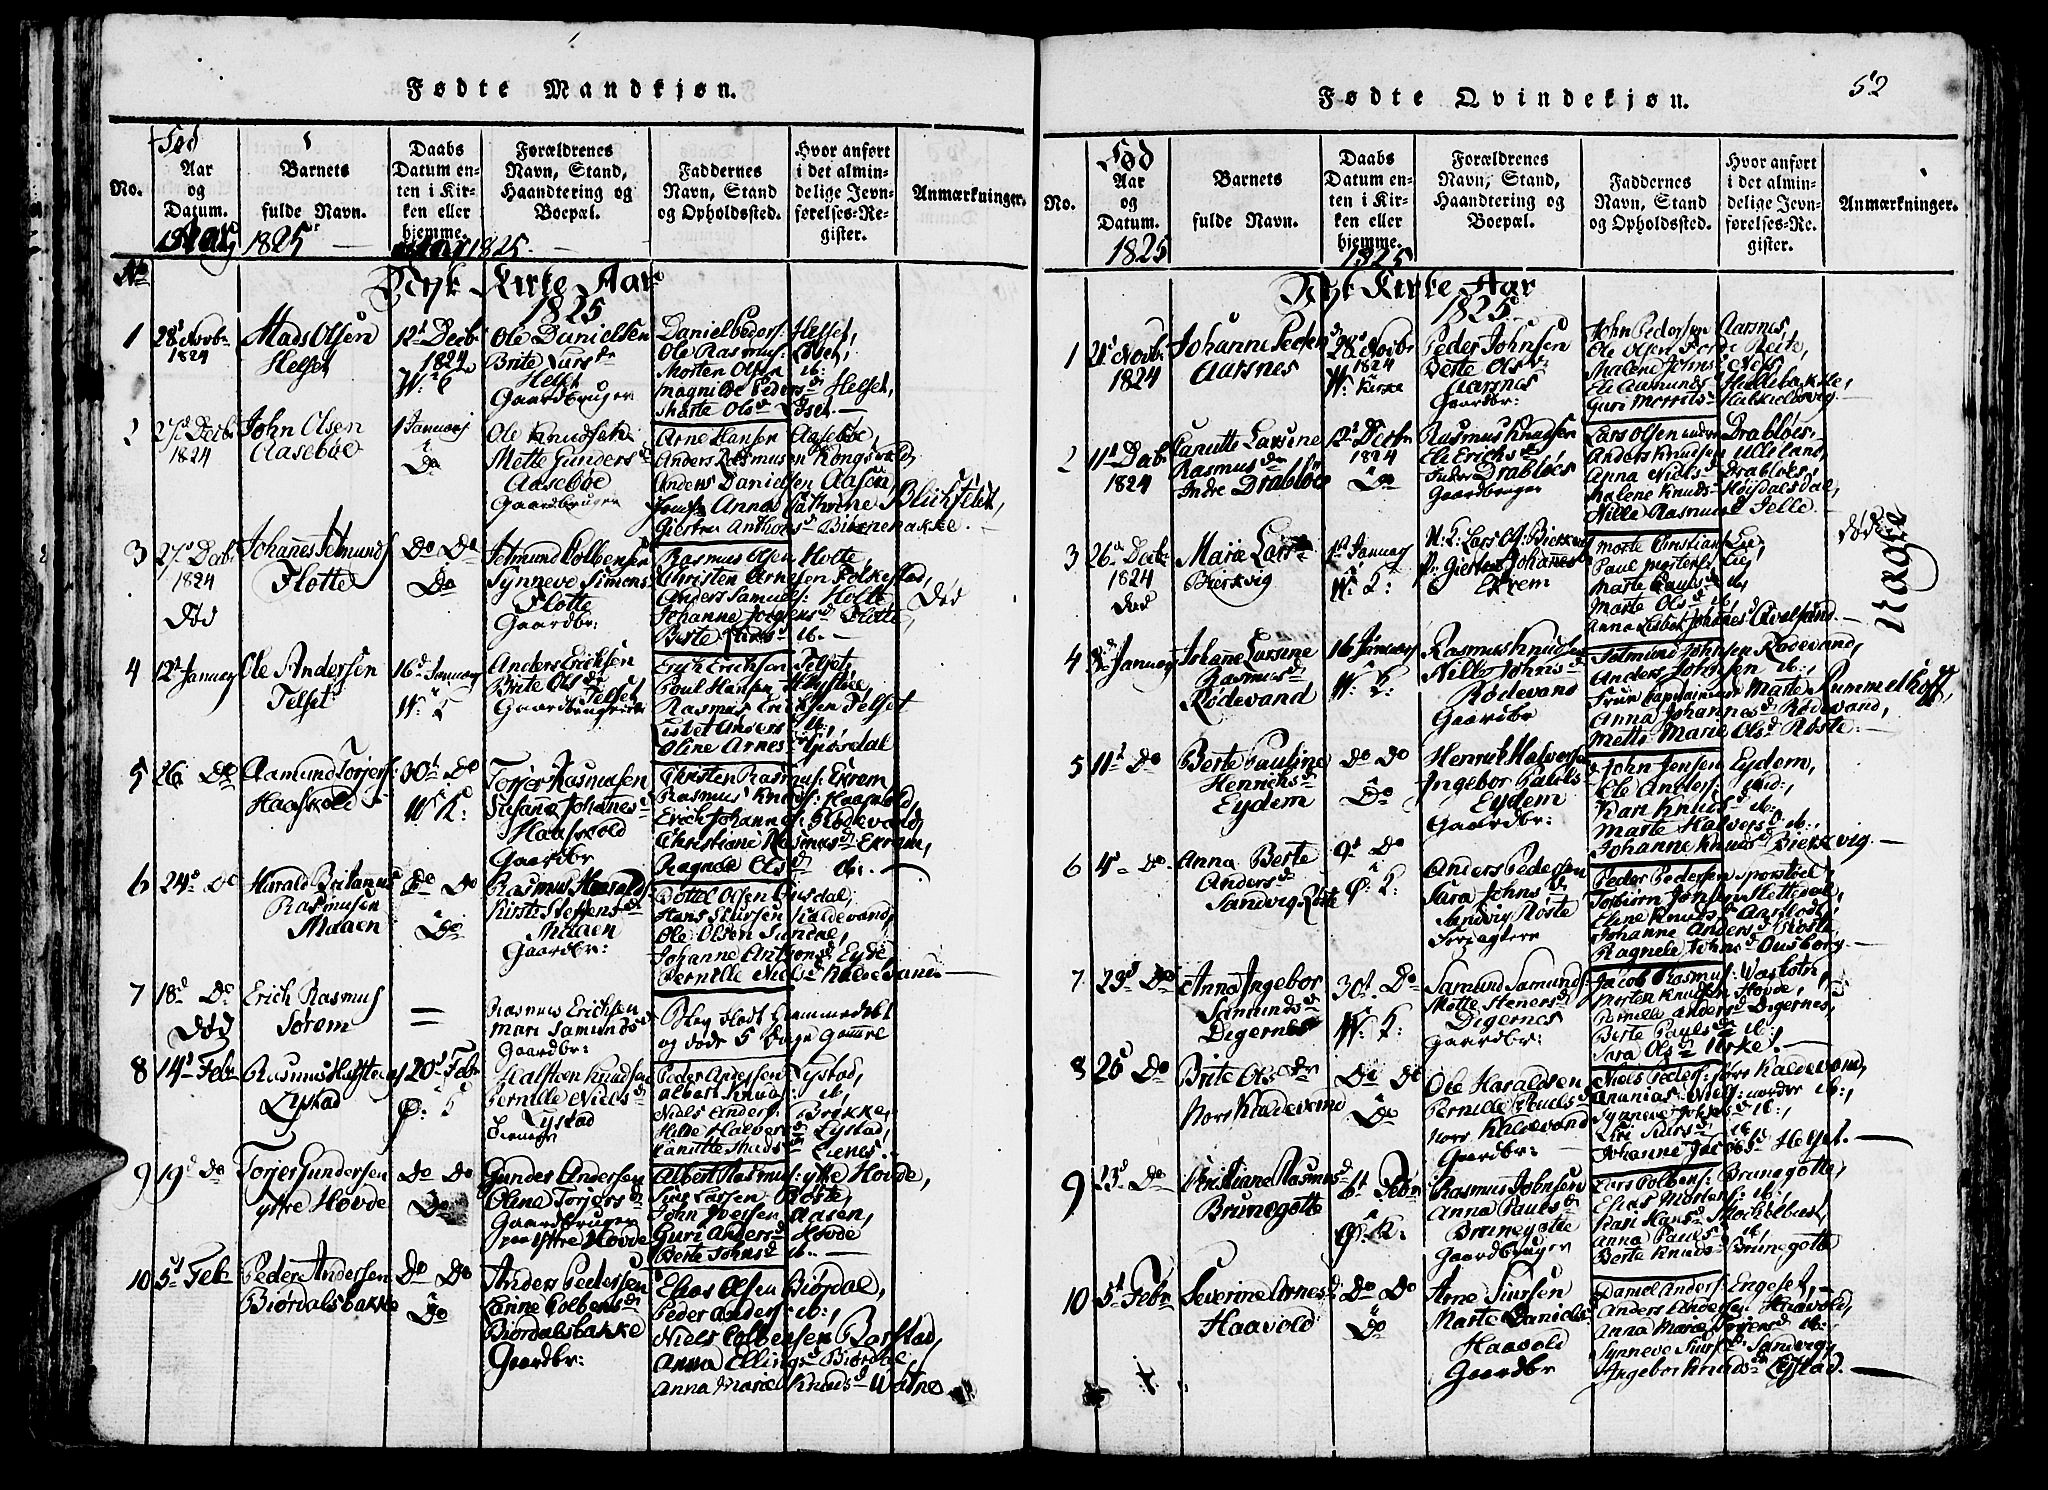 Fødte Mandkjøn.
No.
Fød
Aar
og
Datum.
Barnets
fulde Navn.
Daabs
Datum en-
ten i Kir-
ken eller
hjemme.
Forældrenes
Navn, Stand,
Haandtering og
Boepæl.
Faddernes
Navn, Stand
og Opholdssted.
Hvor anført
i det almin-
delige Jevn-
førelses-Re-
gister.
Anmærkninger.
1825
1825
No
Nyt Kirke Aar
1825
1
28d Novbr
1824
Mads Olsen
Helset
12t Decbr
1824
W: K
Ole Danielsen
Brite Lars dr
Helset
Gaardbruger
Daniel Peders: Helset,
Ole Rasmus: Løset,
Morten Olsen ib:
Magnilde Peders Helset,
Marte Olsd Løset.
2
27d Decbr
1824
John Olsen
Aasebøe
1 Januarj
Do
Ole Knudsen
Mette Gundersd
Aasebøe
Gaardbruger
Arne Hansen Aasebøe,
Anders Rasmusen Kongsvold,
Anders Danielsen Aasen,
Anna Cathrine Blichfeldt,
Giertru Anthonsd Birkenebakke.
3
27d Decbr
1824
Død
Johanes Jetmunds
Flotte
Do Do
Do
Jetmund Colbensen
Synneve Simons
Flotte
Gaardbr:
Rasmus Olsen Holte,
Christen Arnesen Folkestad,
Anders Samuels: Holte
Johanne Jørgensd Flotte,
Berte ib.
Død
4
12t Januarj
Ole Andersen
Telset
16d Januarj
W: K
Anders Ericksen
Brite Olsdr
Telset
Gaardbrugere
Erich Erichsen Telset,
Poul Hansen
Rasmus Ericksen Telset
Lisbet Anders ib:,
Oline Arnes
5
26 Do
Aamund Torjers:
Haaskold
30t Do
W: K:
Torjer Rasmusen
Stefana Johanesd
Haavold
Gaardbr
Christen Rasmus: Ekrem
Rasmus Knuds: Haavold,
Erich Johannes: Rødevand,
Christiane Rasmusd Ekrem,
Ragnele Olsd ib.
6
24d Do
Harald Britanus
Rasmusen
Maaen
Do Do
Do
Rasmus Haralds
Kirsti Steffensd
Maaen
Gaardbr:
Bottel Olsen
Hans Siursen Kaldevand,
Ole Olsen
Johanne Antonsd Eyde
Pernille Nielsd Kaldevand
7
18d Do
Død
Erich Rasmus
Sørem
=
Rasmus Erichsen
Mari Samunds d
Gaardbr:
Blev Hiemmedøbt
og døde 5 Dage Gammel
8
14d Febr
Rasmus Halsteens
Lystad
20d Febr
Ø: K
Halsteen Knudsen
Pernille Nielsd
Lystad
Peder Andersen Lystad,
Albert Knuds: ib,
Niels Anders: Brikke,
Hilde Halversd Lystad,
Lienes.
9
19d Do
Torjer Gundersen
Ytre Hovde
Do Do
Do
Gunder Andersen
Oline Torjers d
Gaardbruger
paa Ytre Hovde
Albert Rasmus: ytre Hovde,
Larsen Røste,
John Iversen Aasen,
Guri Andersd Hovde
Berte Johnsd ib.
10
5d Feb
Peder Andersen
Biørdalsbakke
Do Do
Do
Anders Pedersen
Lanne Colbensd
Biørdalsbakke
Gaardbr:
Elias Olsen Biørdal,
Peder Anders: ib:,
Niels Colbensen Barstad,
Anna Ellingsd Biørdal,
Anna Maria Knudsd Watne
52
Fødte Qvindekjøn.
No.
Fød
Aar
og
Datum.
1825
Barnets
fulde Navn.
Daabs
Datum en-
ten i Kir-
ken eller
hjemme.
1825
Forældrenes
Navn, Stand,
Haandtering og
Boepæl.
Faddernes
Navn, Stand
og Opholdssted.
Hvor anført
i det almin-
delige Jevn-
førelses-Re-
gister.
Anmærkninger.
Nyt Kirke Aar
1825
1
21d Novbr
1824
Johanne Peders
Aarsnes
28d Novbr
1824
W: Kirke
Peder Johnsen
Berte Olsd
Aarsnes
Gaardbr:
John Pedersen Aarsnes,
Ole Olsen
Malene Johns
Eli Aamunds Hellebakke,
Guri Morrits
2
11d Decbr
1824
Lanutte Larsine
Rasmusdr
Indre Drabløs
12t Decbr
1824
Do
Rasmus Knudsen
Eli Erichsd
Indre Drabløes
Gaardbruger
Lars Olsen indre Drabløes,
Anders Knudsen Ulleland,
Anna Nielsd Drabløes,
Malene Knuds Høisdalsdal,
Nille Rasmusd Jelle.
3
26d Decbr
1824
Død
Maria Larsdr
Bierkvig
1st Januarj
W: K:
U: K: Lars Ols Bierkvig
P: Giertru Johanesd
Ekrem
Morte Christians Lie,
Paul Mortens Lie,
Marte Paulsd ib,
Marte Olsd ib,
Anna Lisbet Johanesd
død
Uægte
4
3d Januarj
Johanne Larsine
Rasmusd
Rødevand
16 Januarj
W: K:
Rasmus Knudsen
Nille Johnsd
Rødevand
Gaardbr
Jetmund Johnsen Rødevand,
Anders Johnsen ib:,
Frue Kapitainer Marte Rummelhoff,
Anna Johannesd Rødevand,
Mette Marie Olsd Røste.
5
11d Do
Berte Pauline
Henrichsd
Eydem
Do Do
Do
Henrik Halversen
Ingebor Pauls
Eydem
Gaardbr:
John Jensen Eydem,
Ole Anders: ibid:,
Kari Knudsd ib.
Marte Halversd ib.,
Johanne Knudsd Bierkvig.
6
4d Do
Anna Berte
Andersd
Sandvig Røste
9d Do
Ø: K:
Anders Pedersen
Sara Johnsd
Sandvig Røste
Forpagtere
Peder Pedersen
Torbiørn Jonsen Slettevol,
Eline Knudsd Aarflodt,
Johanne Andersd Røste
Ragnele Johnsd Ousborg
7
29d Do
Anna Ingebor
Samundsd
Digernes
30t. Do
W: K:
Samund Samunds
Mette Stenersd
Digernes
Gaardbr:
Jacob Rasmus: Wasbotn,
Morten Knudsen Hovde,
Pernille Andersd Digernes,
Berte Paulsdr ib:,
Sara Olsd Urke.
8
26d Do
Brite Olsdr
Nors Kaldevand
Do Do
Do
Ole Haraldsen
Pernille Paulsd
Nors Kaldevand
Gaardbr:
Niels Peders: Nors Kaldevand,
Ananias Niels: ib:,
Synneve Johnsd ib:,
Siursd ib
Johanne Jacobsd Helset.
9
23d Do
Kristiane Rasmusd
Brunegotte
6t Febr
Ø: K:
Rasmus Johnsen
Anna Paulsd
Brunegotte
Gaardbruger
Lars Colbens: Brunegotte,
Elias Mortens: ib:,
Kari Hansd
Anna Paulsd ib,
Berte Knudsd Brunegotte
10
5d Febr
Severine Arnesd
Haavold
Do Do
Do
Arne Siursen
Marte Daniels
Haavold
Gaardbr
Daniel Anders: Engeset,
Anders Andersen Haavold,
Anna Maria Torjersd ib:
Synneve Siursd Sandvig,
Ingebor Knudsd Lystad.